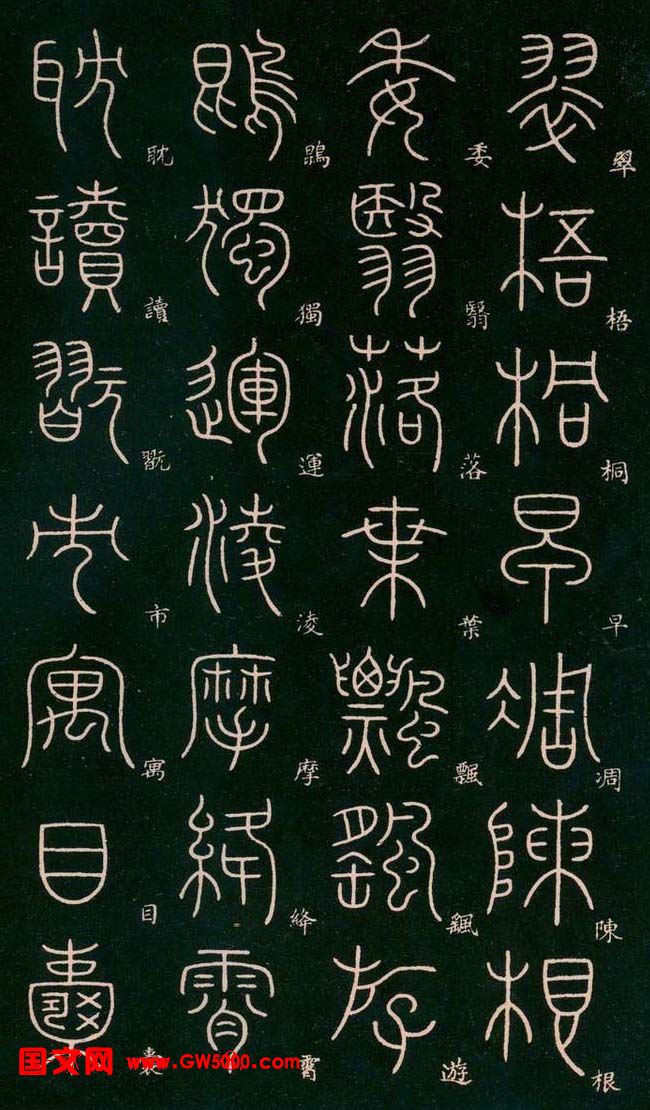 翠梧桐早凋陳根
委翳落葉飄颻遊
鵾獨運淩摩絳霄
耽讀翫市寓目囊
国文网 www.GW5000.com